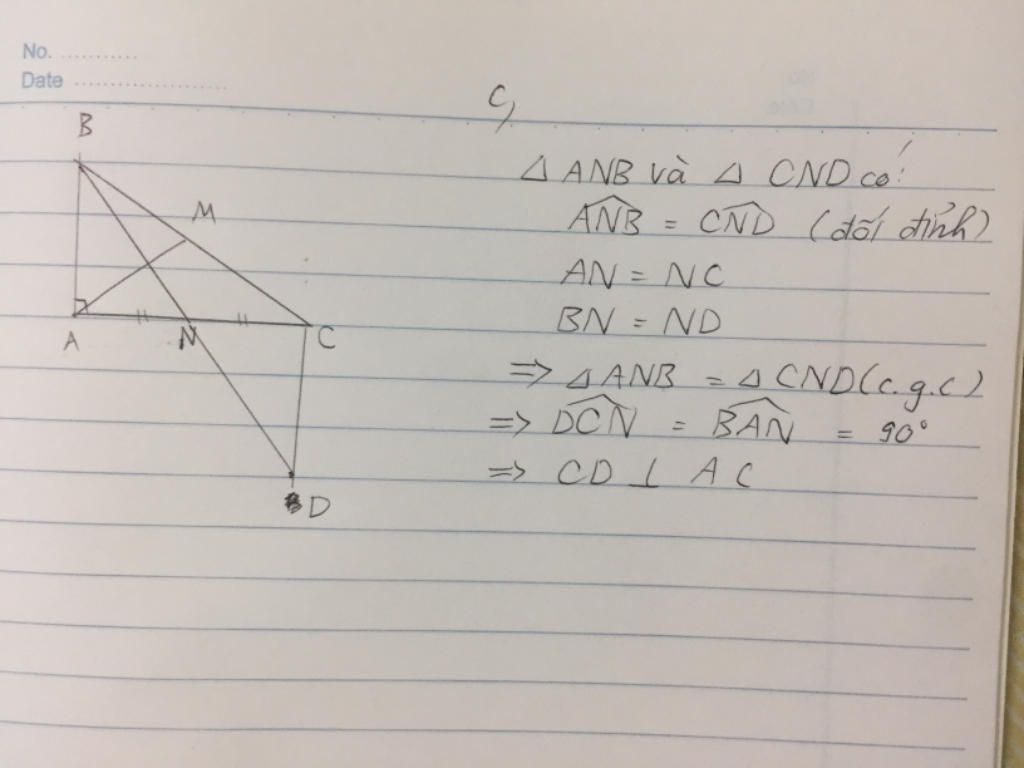 No. ...........
Date ........................
c,
B
M
A
N
C
D
Δ ANB và Δ CND có:
∠ANB = ∠CND (đối đỉnh)
AN = NC
BN = ND
=> Δ ANB = Δ CND (c.g.c)
=> ∠DCN = ∠BAN = 90°
=> CD ⊥ AC